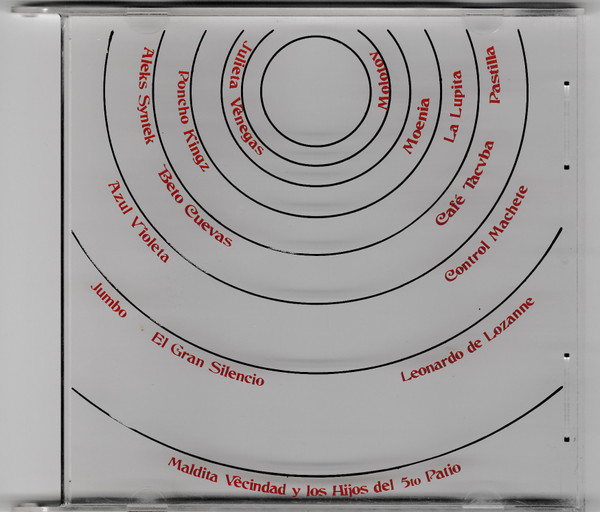 Julieta Vénegas
Molotov
Poncho Kingz
Moenia
Aleks Syntek
La Lupita
Pastilla
Beto Cuevas
Café Tacvba
Azul Violeta
Control Machete
Jumbo
El Gran Silencio
Leonardo de Lozanne
Maldita Vêcindad y los Hijos del 5to Patio